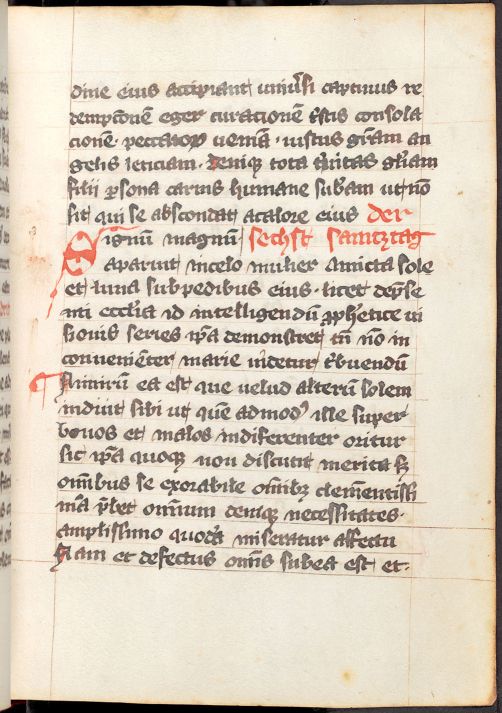 dine eius accipiant uniũsi captiuus re
dempcõnẽ eger curationẽ tristis consola
cionẽ · peccator veniã · iustus grãm an
gelis leticiam · Denique tota trinitas glãm
filii psona carnis humane substãm ut nõ
sit qui se abscondat a calore eius Der
Signũ magnũ sechst samtztag
aparuit in celo mulier Amicta sole
et luna sub pedibus eius · licet de pse
nti ecclĩa id intelligendũ pphetice vi
sionis series ip̃a demonstret tñ nõ in
conuenienter marie videtur tbuendũ
Nimirũ ea est que velud alterũ solem
induit sibi ut quẽ admodũ ille super
bonos et malos indiferenter oritur
sic ip̃a quoque non discutit merita sꝫ
om̃ibus se exorabile om̃ibꝫ clementissi
mã p̃bet omnium denique necessitates ·
amplissimo quodã miseratur affectu
Nam et defectus om̃is subea est et ·